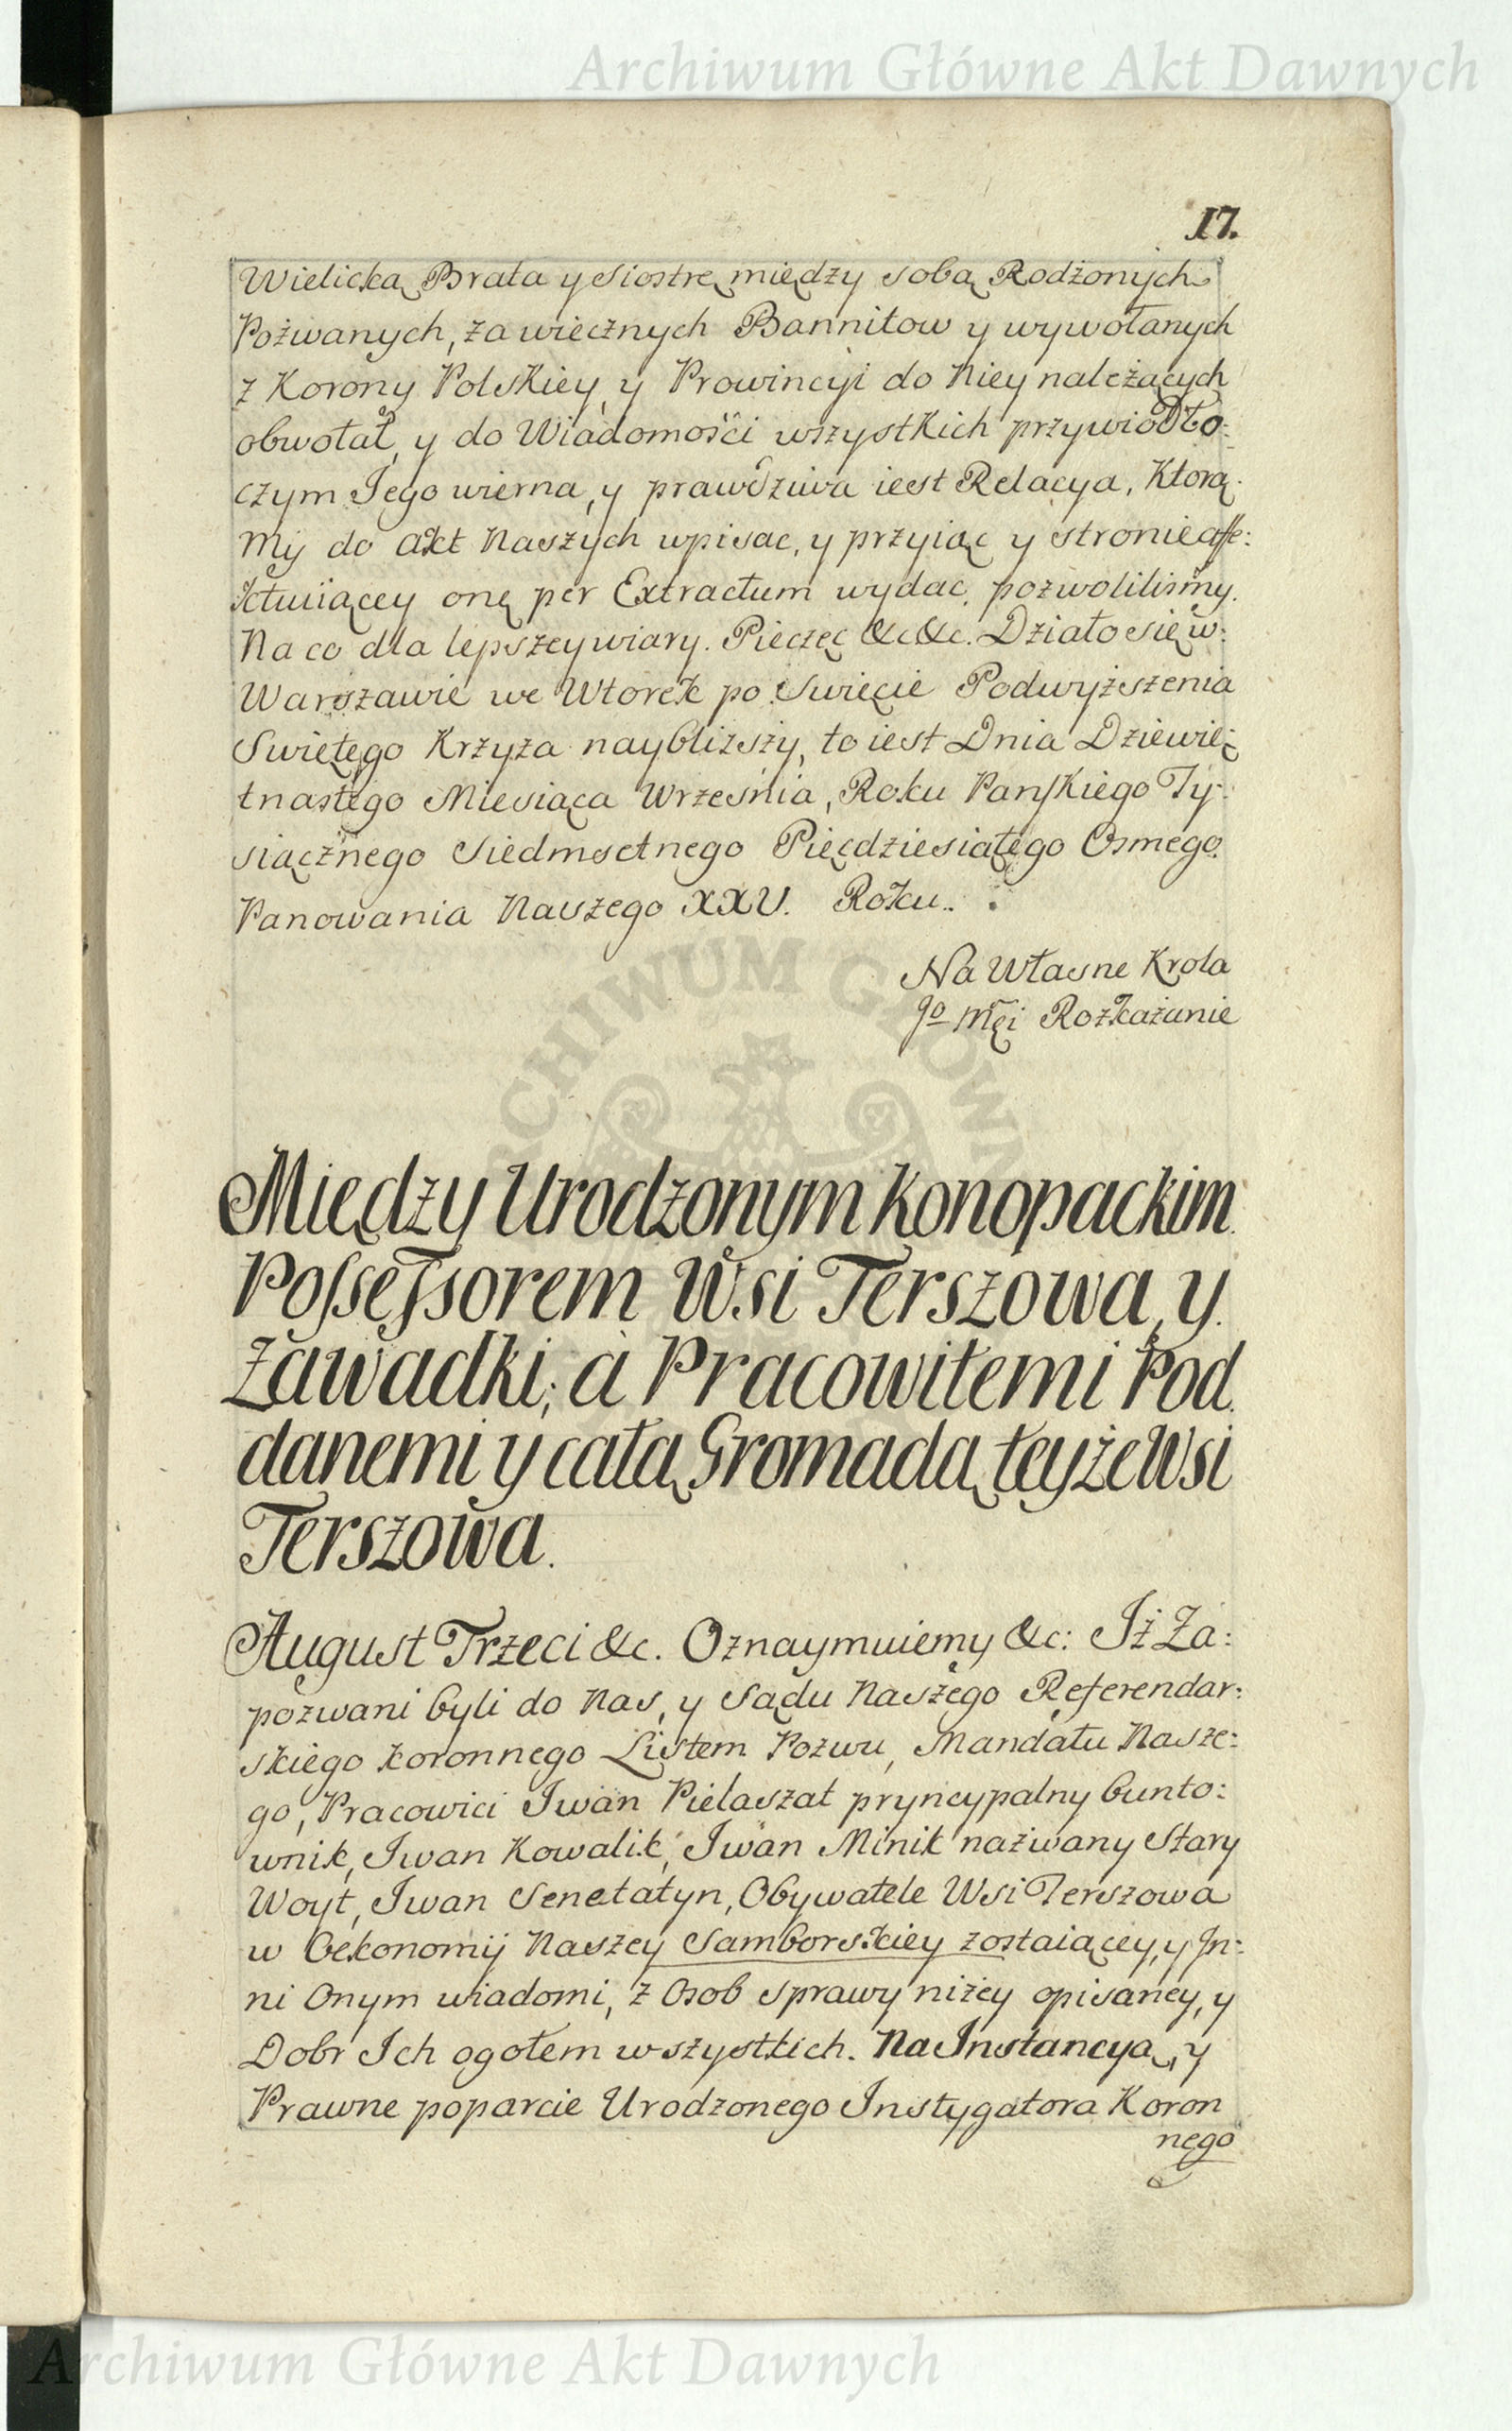 Archiwum Główne Akt Dawnych
17.
Wielicką Brata y Siostrę między sobą Rodżonych
Pożwanych, za wiecznych Bannitow y wywołanych
z Korony Polskiey, y Prowincyi do Niey należących
obwołał, y do Wiadomości wszystkich przywiodł o:
czym Jego wierna, y prawdziwa iest Relacya, Ktorą
My do Akt Naszych wpisac, y przyiąc y stronie affe:
ktuiiącey onę per Extractum wydac, pozwolilismy.
Na co dla lepszey wiary. Pieczęc &c &c. Działo się w:
Warszawie we Wtorek po Swięcie Podwyższenia
Swiętego Krzyża naybliższy, to iest Dnia Dziewię:
tnastego Miesiąca Wrzesnia, Roku Panskiego Ty:
siącznego Siedmsetnego Pięcdziesiątego Osmego.
Panowania Naszego XXV. Roku.
Na Własne Krola
Jo Mci Rozkażanie
ARCHIWUM GŁÓWN
Między Urodzonym Konopackim
Possessorem Wsi Terszowa, y
Zawadki; à Pracowitemi Pod
danemi y całą Gromadą teyże Wsi
Terszowa.
August Trzeci &c. Oznaymuiemy &c: Iż Za:
pozwani byli do Nas, y Sądu Naszego Referendar:
skiego koronnego Listem Pozwu, Mandatu Nasze:
go, Pracowici Iwan Pielaszat pryncypalny bunto:
wnik, Iwan Kowalik, Iwan Minik nazwany Stary
Woyt, Iwan Senetatyn, Obywatele Wsi Terszowa
w Oekonomij Naszey Samborskiey zostaiącey, y In:
ni Onym wiadomi, z Osob sprawy niżey opisaney, y
Dobr Ich ogołem wszystkich. Na Instancyą, y
Prawne poparcie Urodzonego Instygatora Koron
nego
Archiwum Główne Akt Dawnych